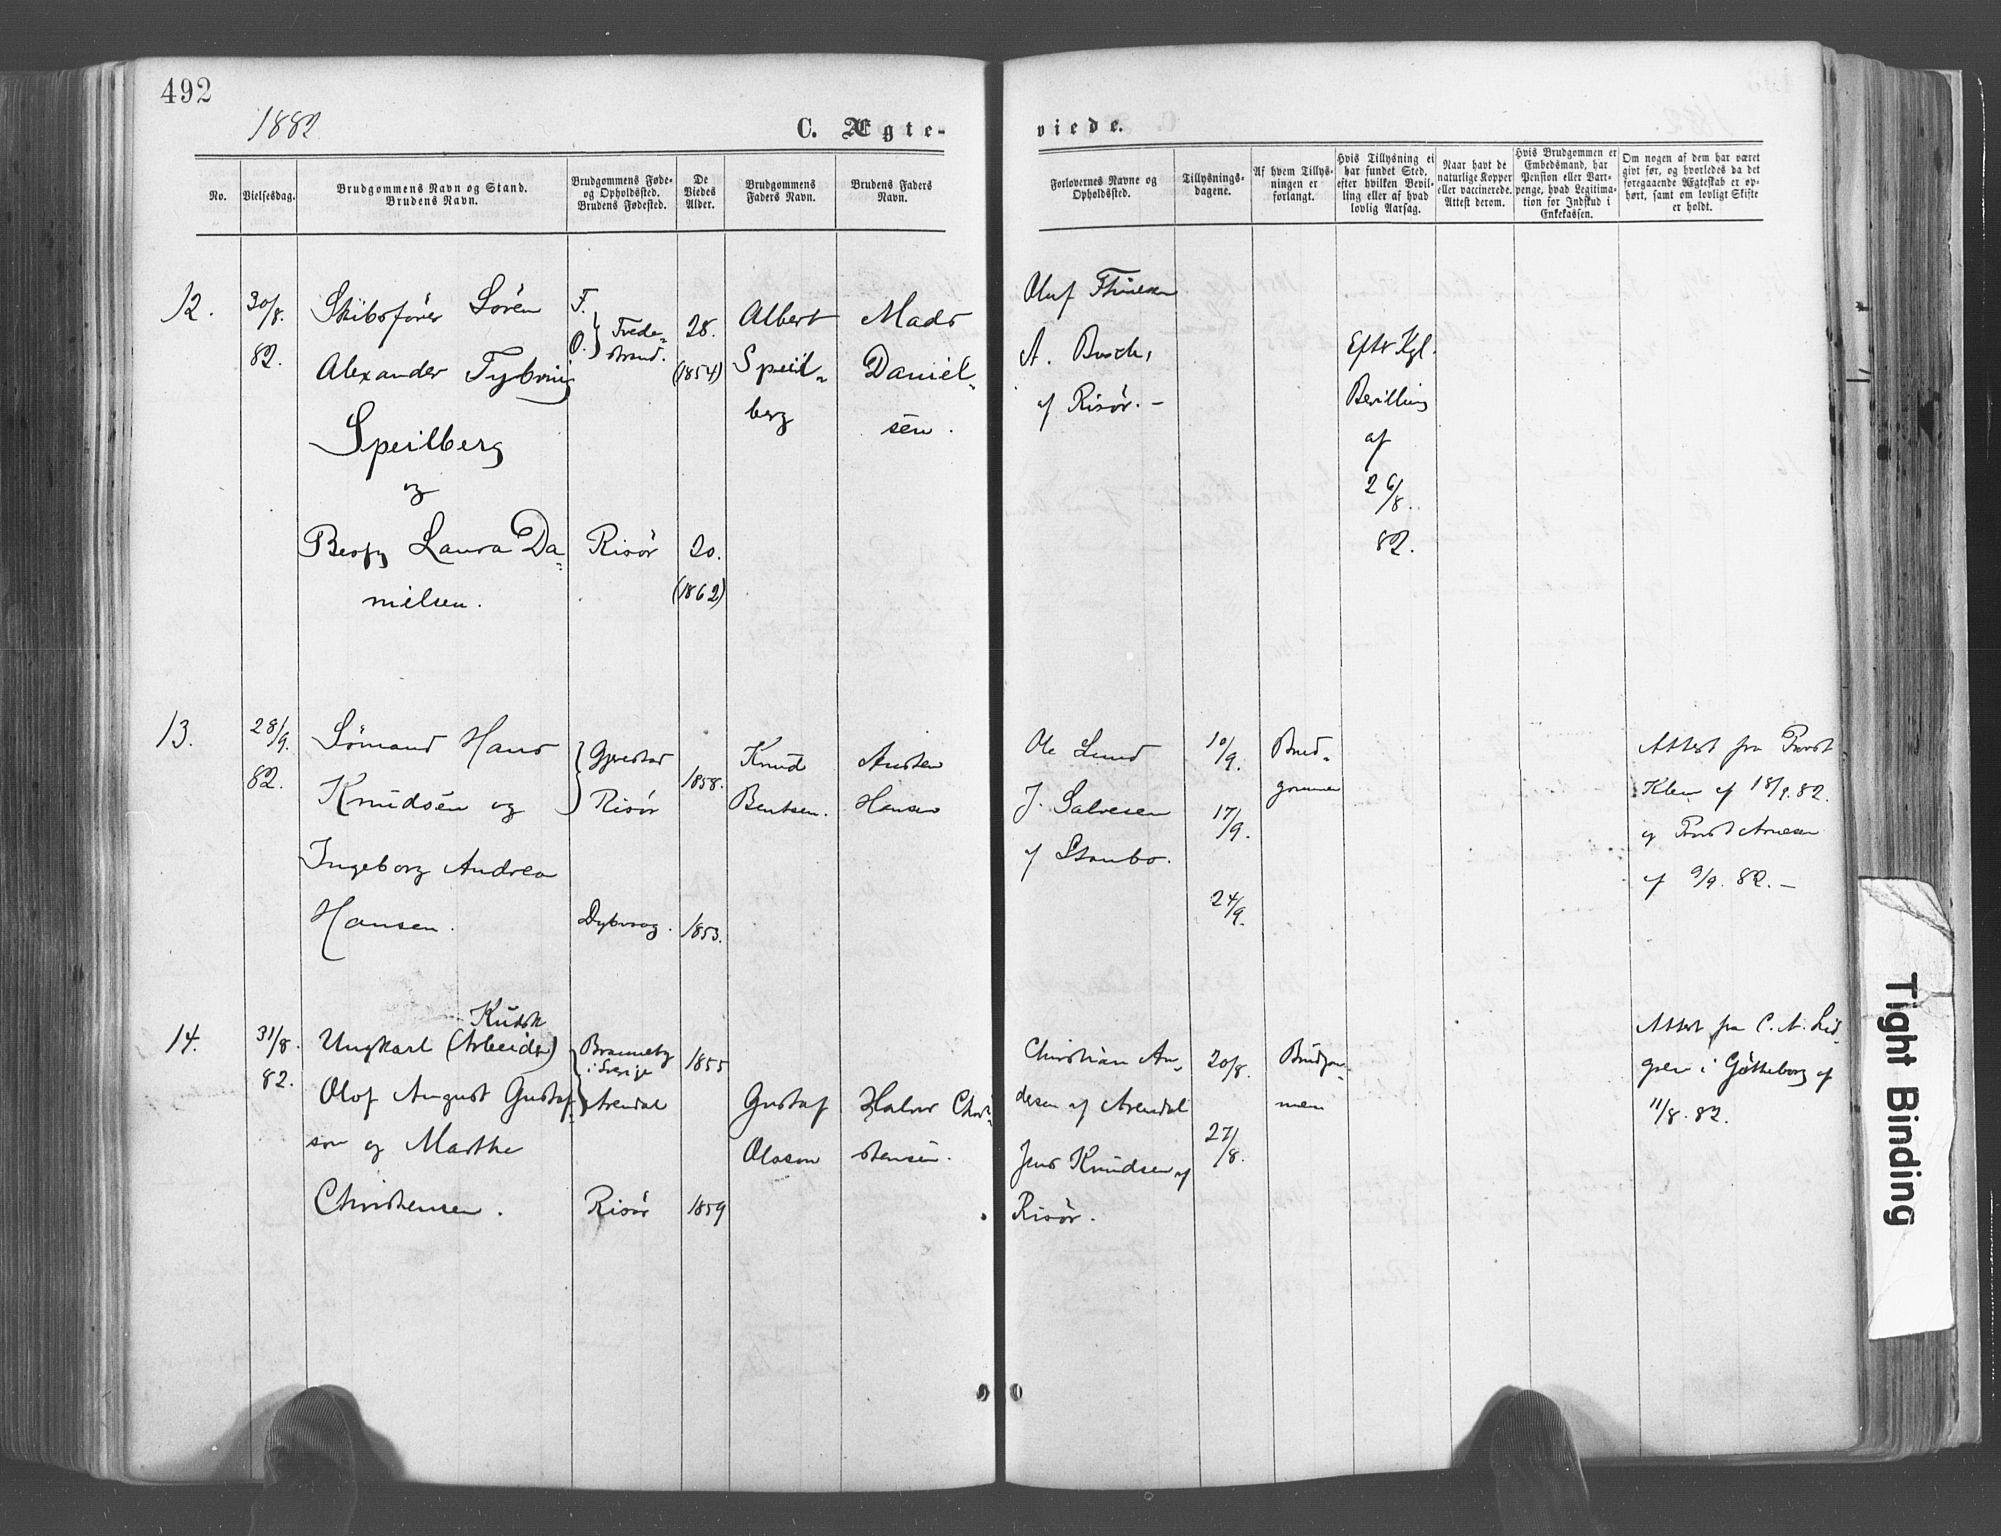 492
1882
C. Ægte-
viede.
No.
Vielsesdag.
Brudgommens Navn og Stand.
Brudens Navn.
Brudgommens Føde-
og Opholdssted.
Brudens Fødested.
De
Viedes
Alder.
Brudgommens
Faders Navn.
Brudens Faders
Navn.
Forlovernes Navne og
Opholdssted.
Tillysnings-
dagene.
Af hvem Tillys-
ningen er
forlangt.
Hvis Tillysning ei
har fundet Sted,
efter hvilken Bevil-
ling eller af hvad
lovlig Aarsag.
Naar havt de
naturlige Kopper
eller vaccinerede.
Attest derom.
Hvis Brudgommen er
Embedsmand, har
Pension eller Vart-
penge, hvad Legitima-
tion for Indskud i
Enkekassen.
Om nogen af dem har været
givt før, og hvorledes da det
foregaaende Ægteskab er op-
hørt, samt om lovligt Skifte
er holdt.
12.
30/8.
82.
Skibsfører Sören
Alexander
Speilberg
og
Laura Da-
nielsen.
F.
O. } Tvede-
strand.
Risör
28.
(1854)
20.
(1862)
Albert
Speil-
berg
Mads
Daniel-
sen.
Oluf
A.
af Risör. -
Eftr Kgl.
Bevilling
af
26/8.
82.
13.
28/9.
82.
Sömand Hans
Knudsen og
Ingeborg Andrea
Hansen.
Gjerestad
Risör
Dybvaag.
1858.
1853.
Knud
Bentsen.
Austen
Hansen
Ole Lund
J. Salvesen
af Stanbo.
10/9.
17/9.
24/9.
Brud-
gommen
Attest fra Provst
af 18/9. 82.
og Provst Arnesen
af 9/9. 82. -
14.
31/8.
82.
Kudsk
Ungkarl (Arbeider)
Olof August Gustaf-
son og Marthe
Christensen.
Branneby
i Sverige
Arendal
Risör
1855
1859
Gustaf
Olason
Halvor Chri-
stensen.
Christian An-
dersen af Arendal
Jens Knudsen af
Risör.
20/8.
27/8.
Brudgom-
men
Attest fra C. A. Lid-
gren i Götheborg af
11/8. 82.
Tight Binding